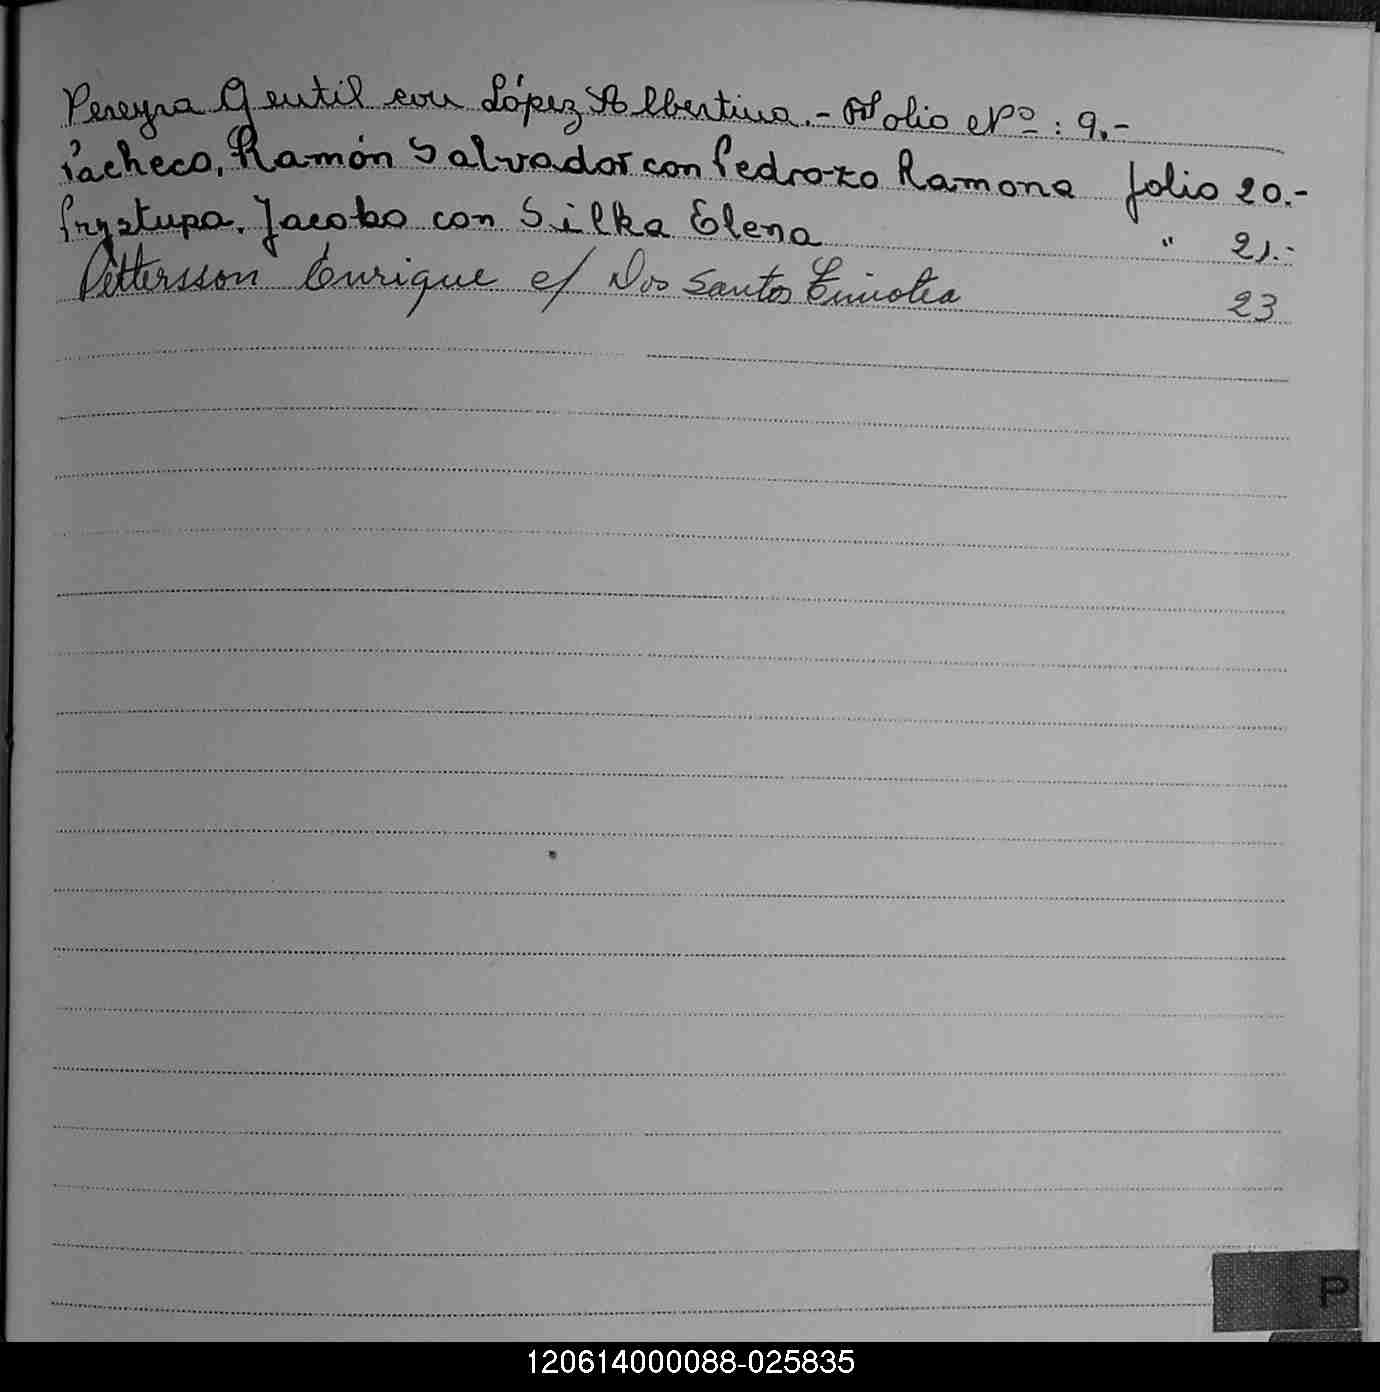 Pereyra Gentil con López Albertina.- Folio Nº: 9.-
Pacheco, Ramón Salvador con Pedrozo Ramona folio 20.-
Prystupa, Jacobo con Silka Elena " 21.-
Pettersson Enrique c/ Dos Santos 23
P
120614000088-025835